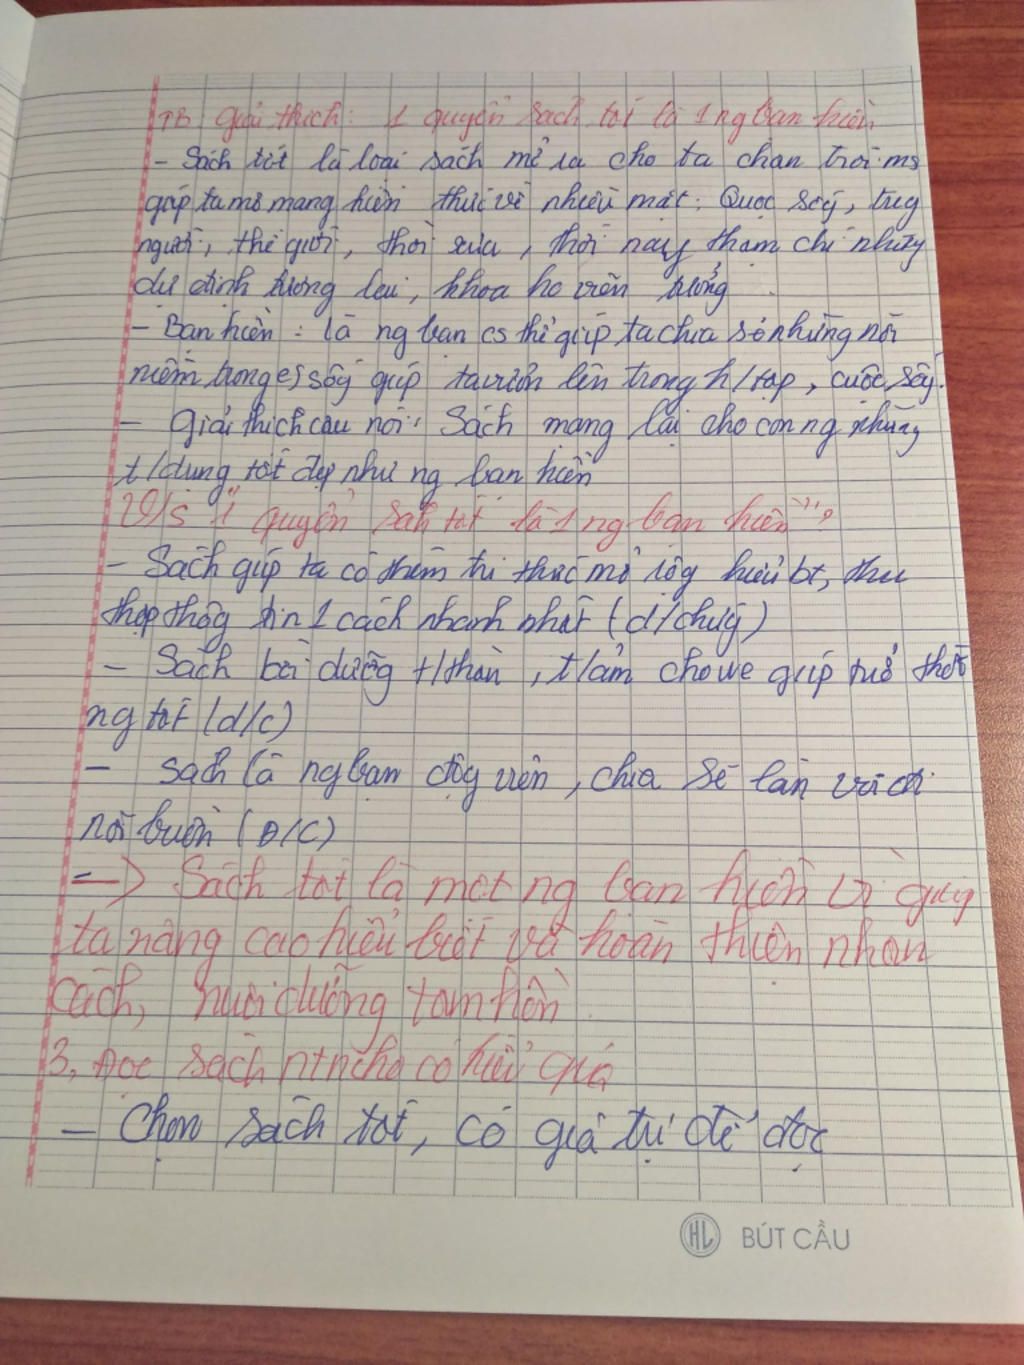 TB giải thích: 1 quyển sách tốt là 1 ng bạn hiền
- Sách tốt là loại sách mở ra cho ta chân trời ms
giúp ta mở mang kiến thức về nhiều mặt: Quọc sốg,
người, thế giới, thời xưa, thời nay thậm chí nhữg
dự định tương lai, khoa ho viễn tưởng
- Bạn hiền: là ng bạn cs thể giúp ta chia sẻ những nỗi
niềm trong sốg giúp ta vươn lên trong h/tập, cuộc sốg.
- Giải thích câu nói: Sách mạng lại cho con ng những
t/dụng tốt đẹp như ng bạn hiền
2 V/s "1 quyển sah tốt là 1 ng bạn hiền"?
- Sách giúp ta có thêm tri thức mở rộg hiểu bt, thu
thập thôg tin 1 cách nhanh nhất (d/chứg)
- Sách bồi dưỡg t/thần, t/cảm cho we giúp trở thàh
ng tốt (d/c)
- sách là ng bạn độg viên, chia sẻ làn vơi đi
nỗi buồn (D/C)
-> Sách tốt là một ng bạn hiền vì giúp
ta nâng cao hiểu biết và hoàn thiện nhân
cách, nuôi dưỡng tâm hồn
3, Đọc sách ntn cho có hiểu quả
- Chọn sách tốt, có giá trị để đọc
HL BÚT CẦU